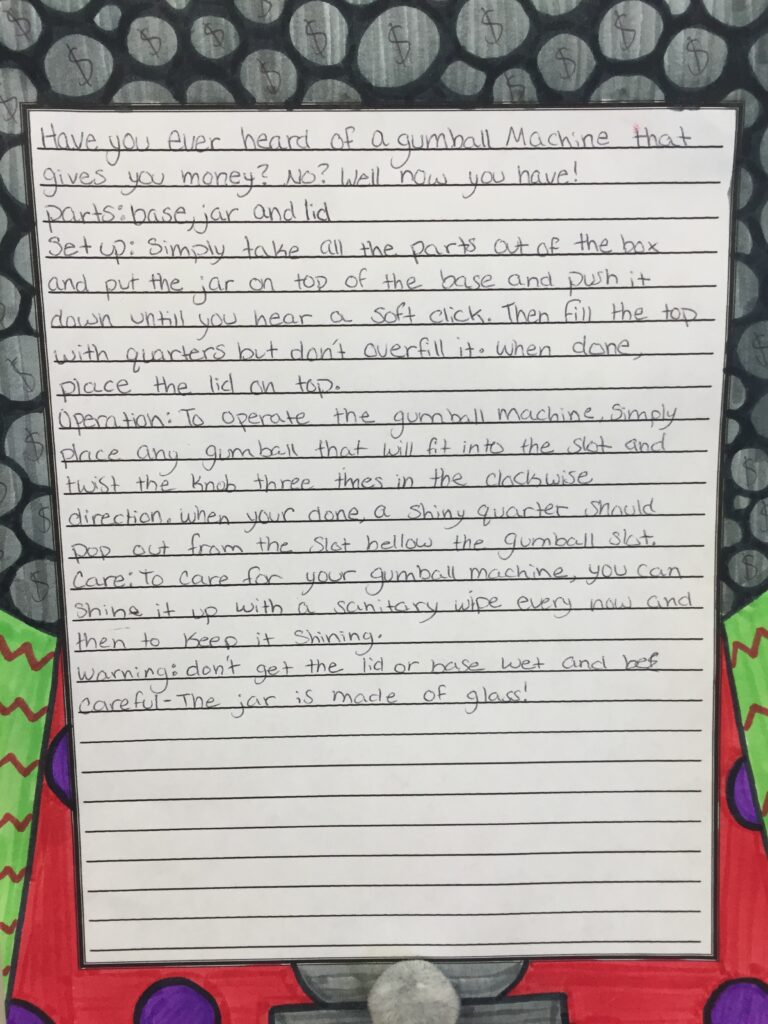 Have you ever heard of a gumball Machine that
gives you money? No? Well now you have!
parts: base, jar and lid
Set up: Simply take all the parts out of the box
and put the jar on top of the base and push it
down untill you hear a soft click. Then fill the top
with quarters but don't overfill it. When done,
place the lid on top.
Operation: To operate the gumball machine, Simply
place any gumball that will fit into the slot and
twist the knob three times in the clockwise
direction. When your done, a shiny quarter should
pop out from the slot bellow the gumball slot.
Care: To care for your gumball machine, you can
shine it up with a sanitary wipe every now and
then to keep it shining.
Warning: don't get the lid or base wet and be
careful - The jar is made of glass!